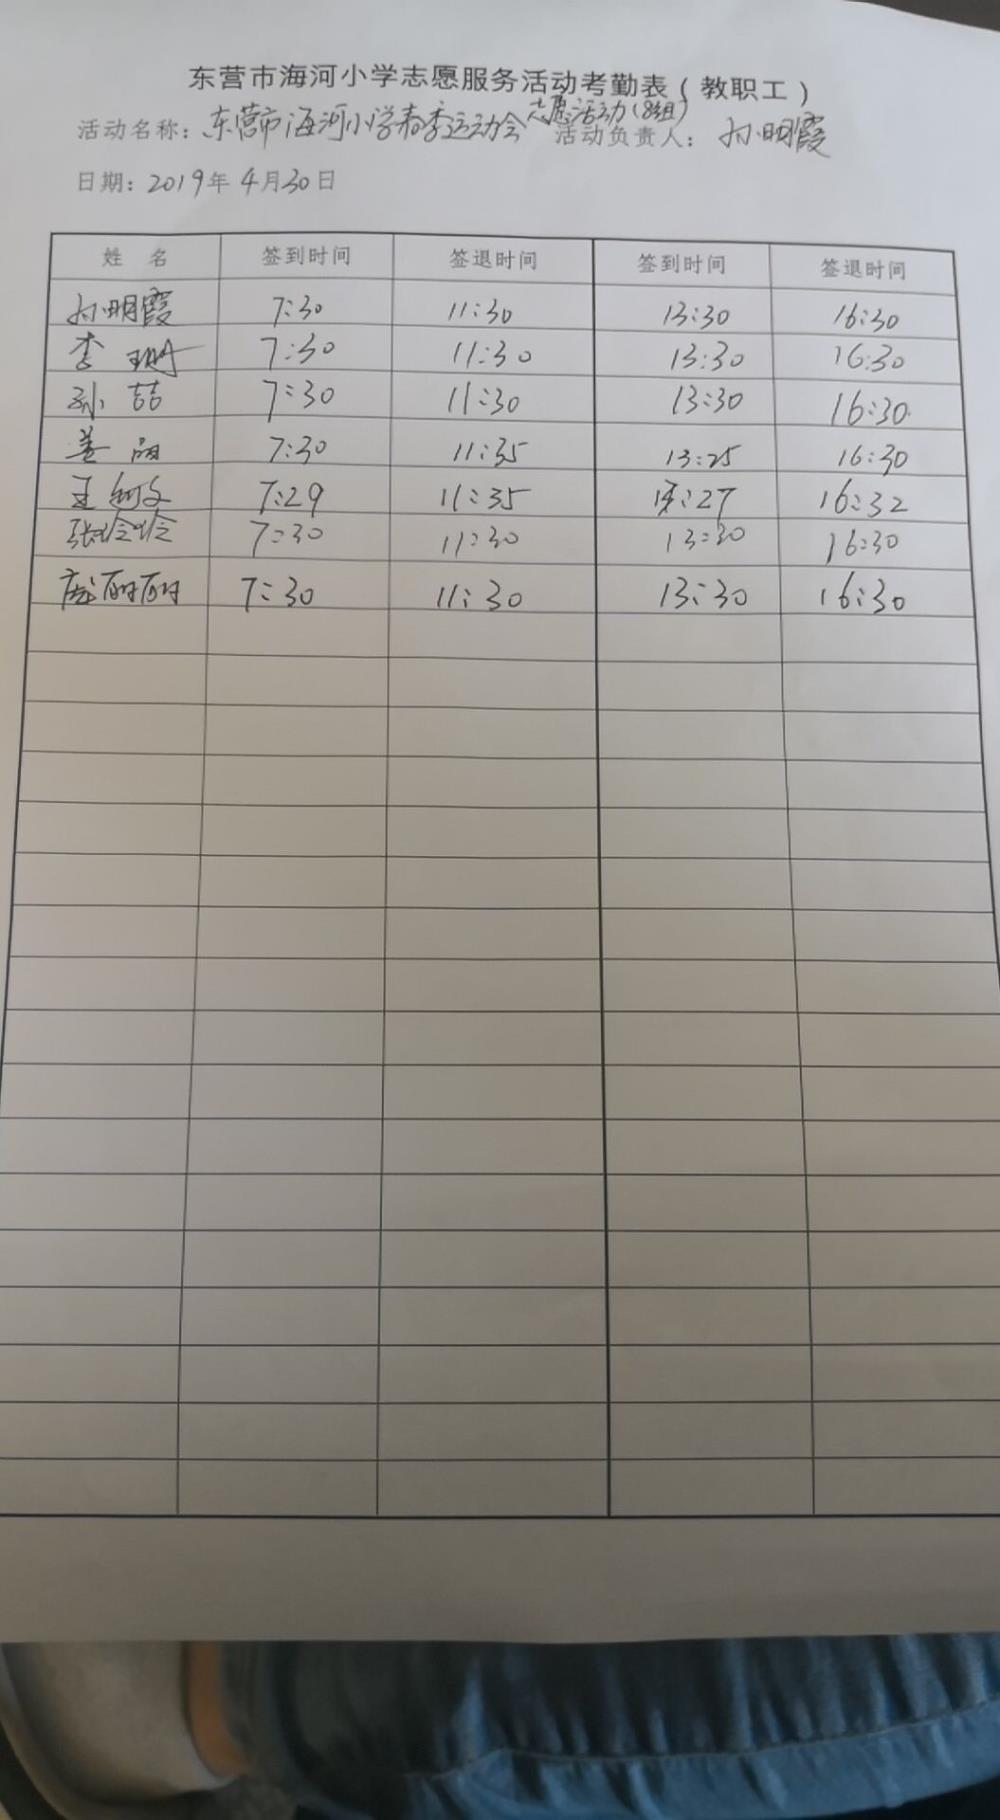 东营市海河小学志愿服务活动考勤表（教职工）
活动名称：东营市海河小学春季运动会志愿活动(8组) 活动负责人：孙明霞
日期：2019年4月30日
姓 名 签到时间 签退时间 签到时间 签退时间
孙明霞 7:30 11:30 13:30 16:30
李珊 7:30 11:30 13:30 16:30
孙喆 7:30 11:30 13:30 16:30
姜丽 7:30 11:35 13:25 16:30
王 7:29 11:35 13:27 16:32
张玲玲 7:30 11:30 13:30 16:30
7:30 11:30 13:30 16:30